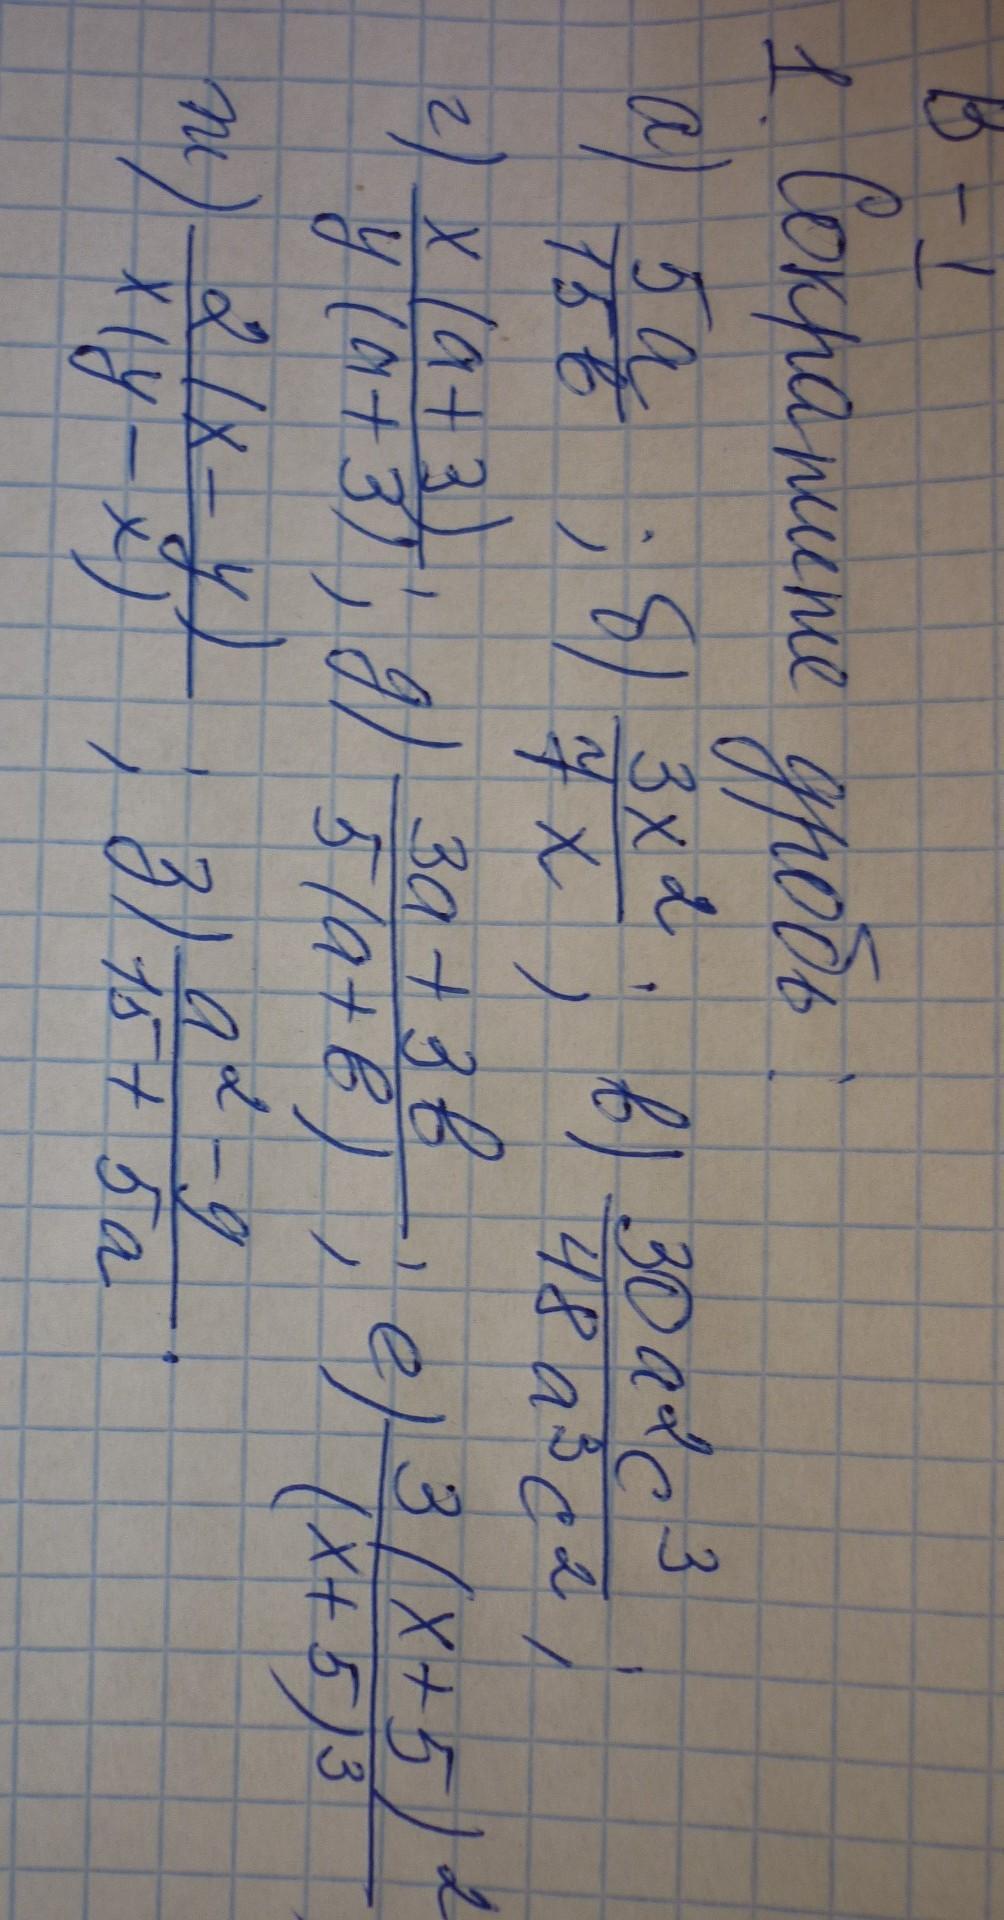 В-1
1. Сократите дробь:
а) 5a/15b; б) 3x²/7x; в) 30a²c³/48a³c²;
г) x(a+3)/y(a+3); д) 3a+3b/5(a+b); е) 3(x+5)²/(x+5)³
ж) 2(x-y)/x(y-x); з) a²-9/15+5a.